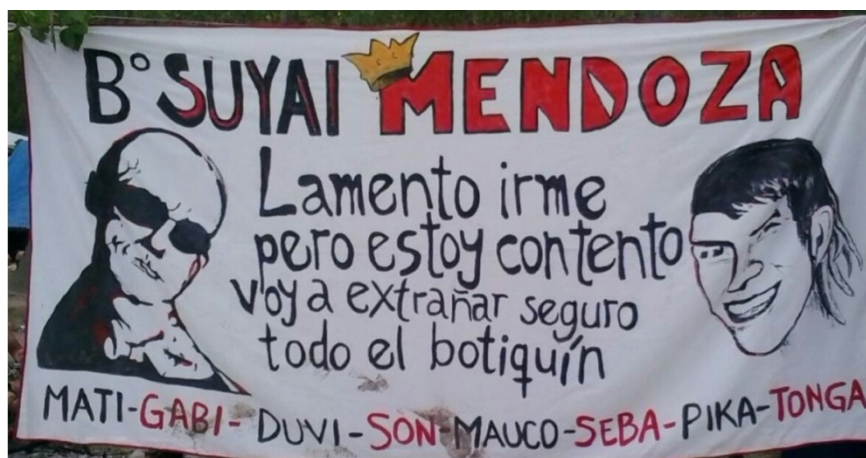 B° SUYAI MENDOZA
Lamento irme
pero estoy contento
voy a extrañar seguro
todo el botiquín
MATI-GABI-DUVI-SON-MAUCO-SEBA-PIKA-TONGA